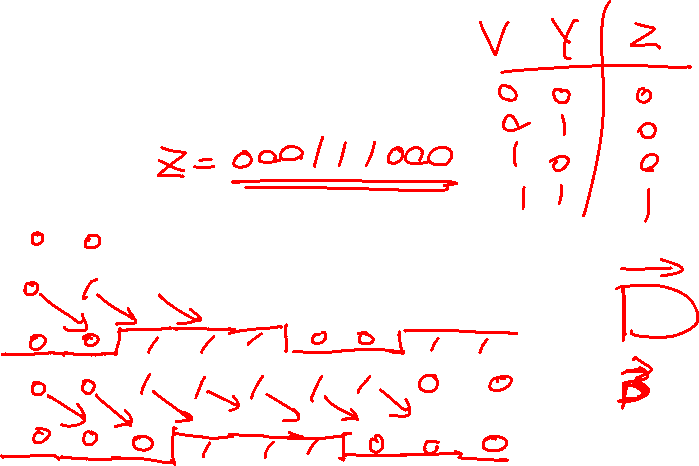 V Y Z
0 0 0
0 1 0
1 0 0
1 1 1
Z = 000111000
0 0
0 1
0 0 1 1 1 0 0 1 1
0 0 1 1 1 1 1 0 0
0 0 0 1 1 1 0 0 0
D
B